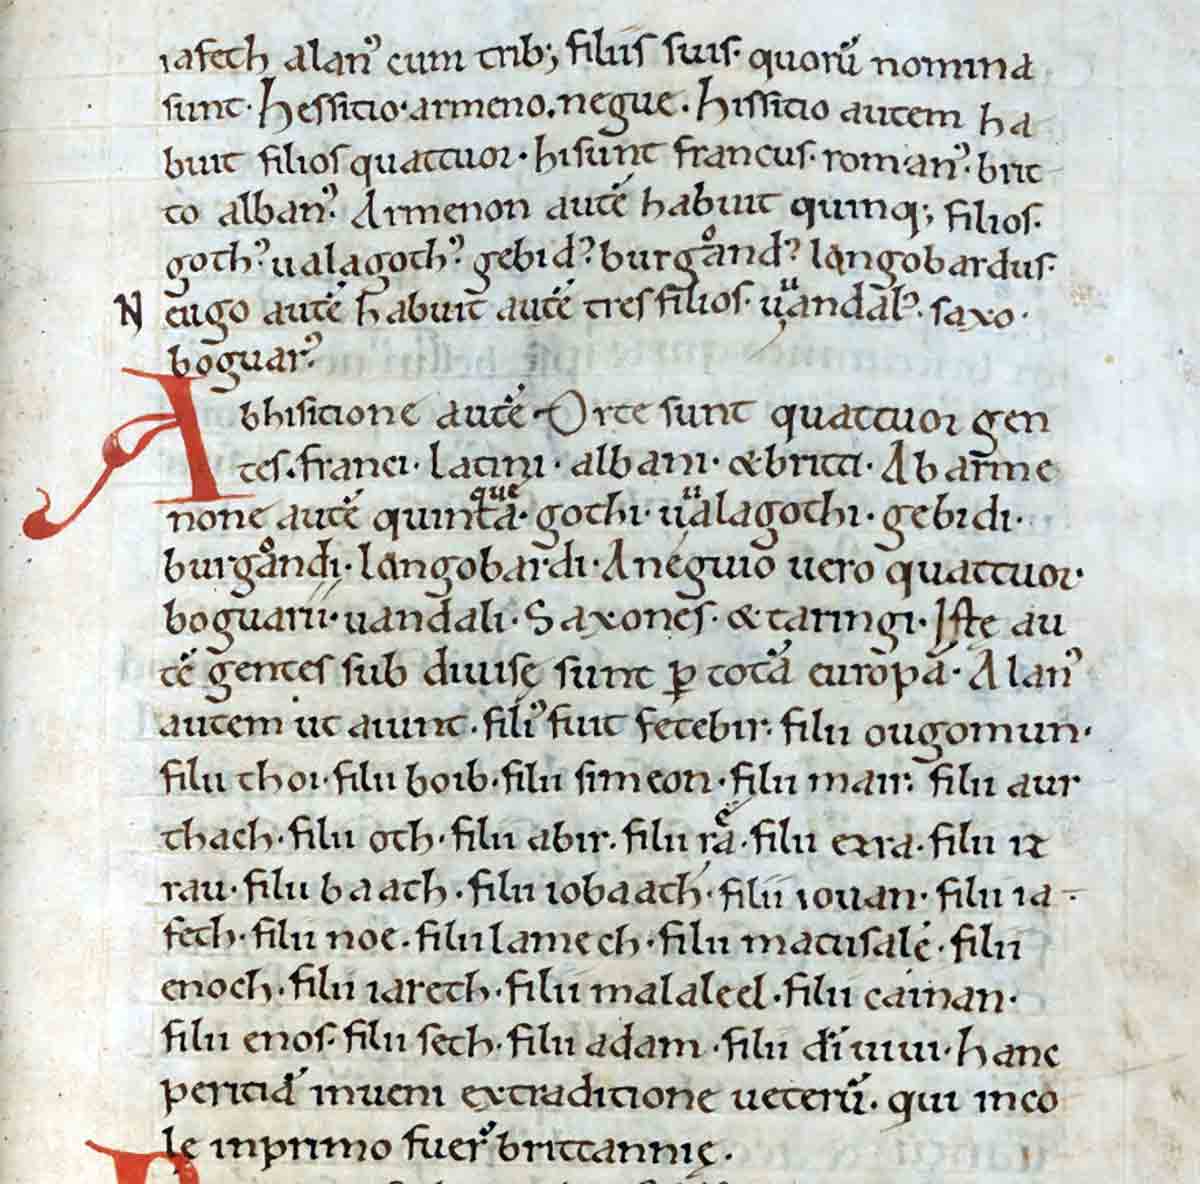 iafeth alan᾽ cum trib; filiis suis· quorū nomina
sunt· hessitio· armeno. negue· hissitio autem ha
buit filios quattuor· hi sunt francus· roman᾽· brit
to alban᾽· Armenon autē habuit quinq; filios·
goth᾽· ualagoth᾽· gebid᾽· burgoand᾽· langobardus·
N eugo autē habuit autē tres filios· uuandal᾽· saxo·
boguar᾽·
Ab hisitione autē Orte sunt quattuor gen
tes· franci· latini· albani· & britti· Ab arme
none autē quintā que· gothi· uualagothi· gebidi·
burgoandi· langobardi· A neguio uero quattuor·
boguarii· uandali· Saxones· & taringi· Iste au
tē gentes sub diuisę sunt ꝑ totā europā· Alan᾽
autem ut aiunt· fili᾽ fuit fetebir· filii ougomun·
filii thoi· filii boib· filii simeon· filii mair· filii aur
thach· filii oth· filii abir· filii rea· filii ezra· filii iz
rau· filii baath· filii iobaath· filii iouan· filii ia
feth· filii noe· filii lamech· filii matusale· filii
enoch· filii iareth· filii malaleel· filii cainan·
filii enos· filii seth· filii adam· filii dī uiui· hanc
peritiā inueni ex traditione ueterū· qui inco
lę in primo fuer᾽ brittannię·